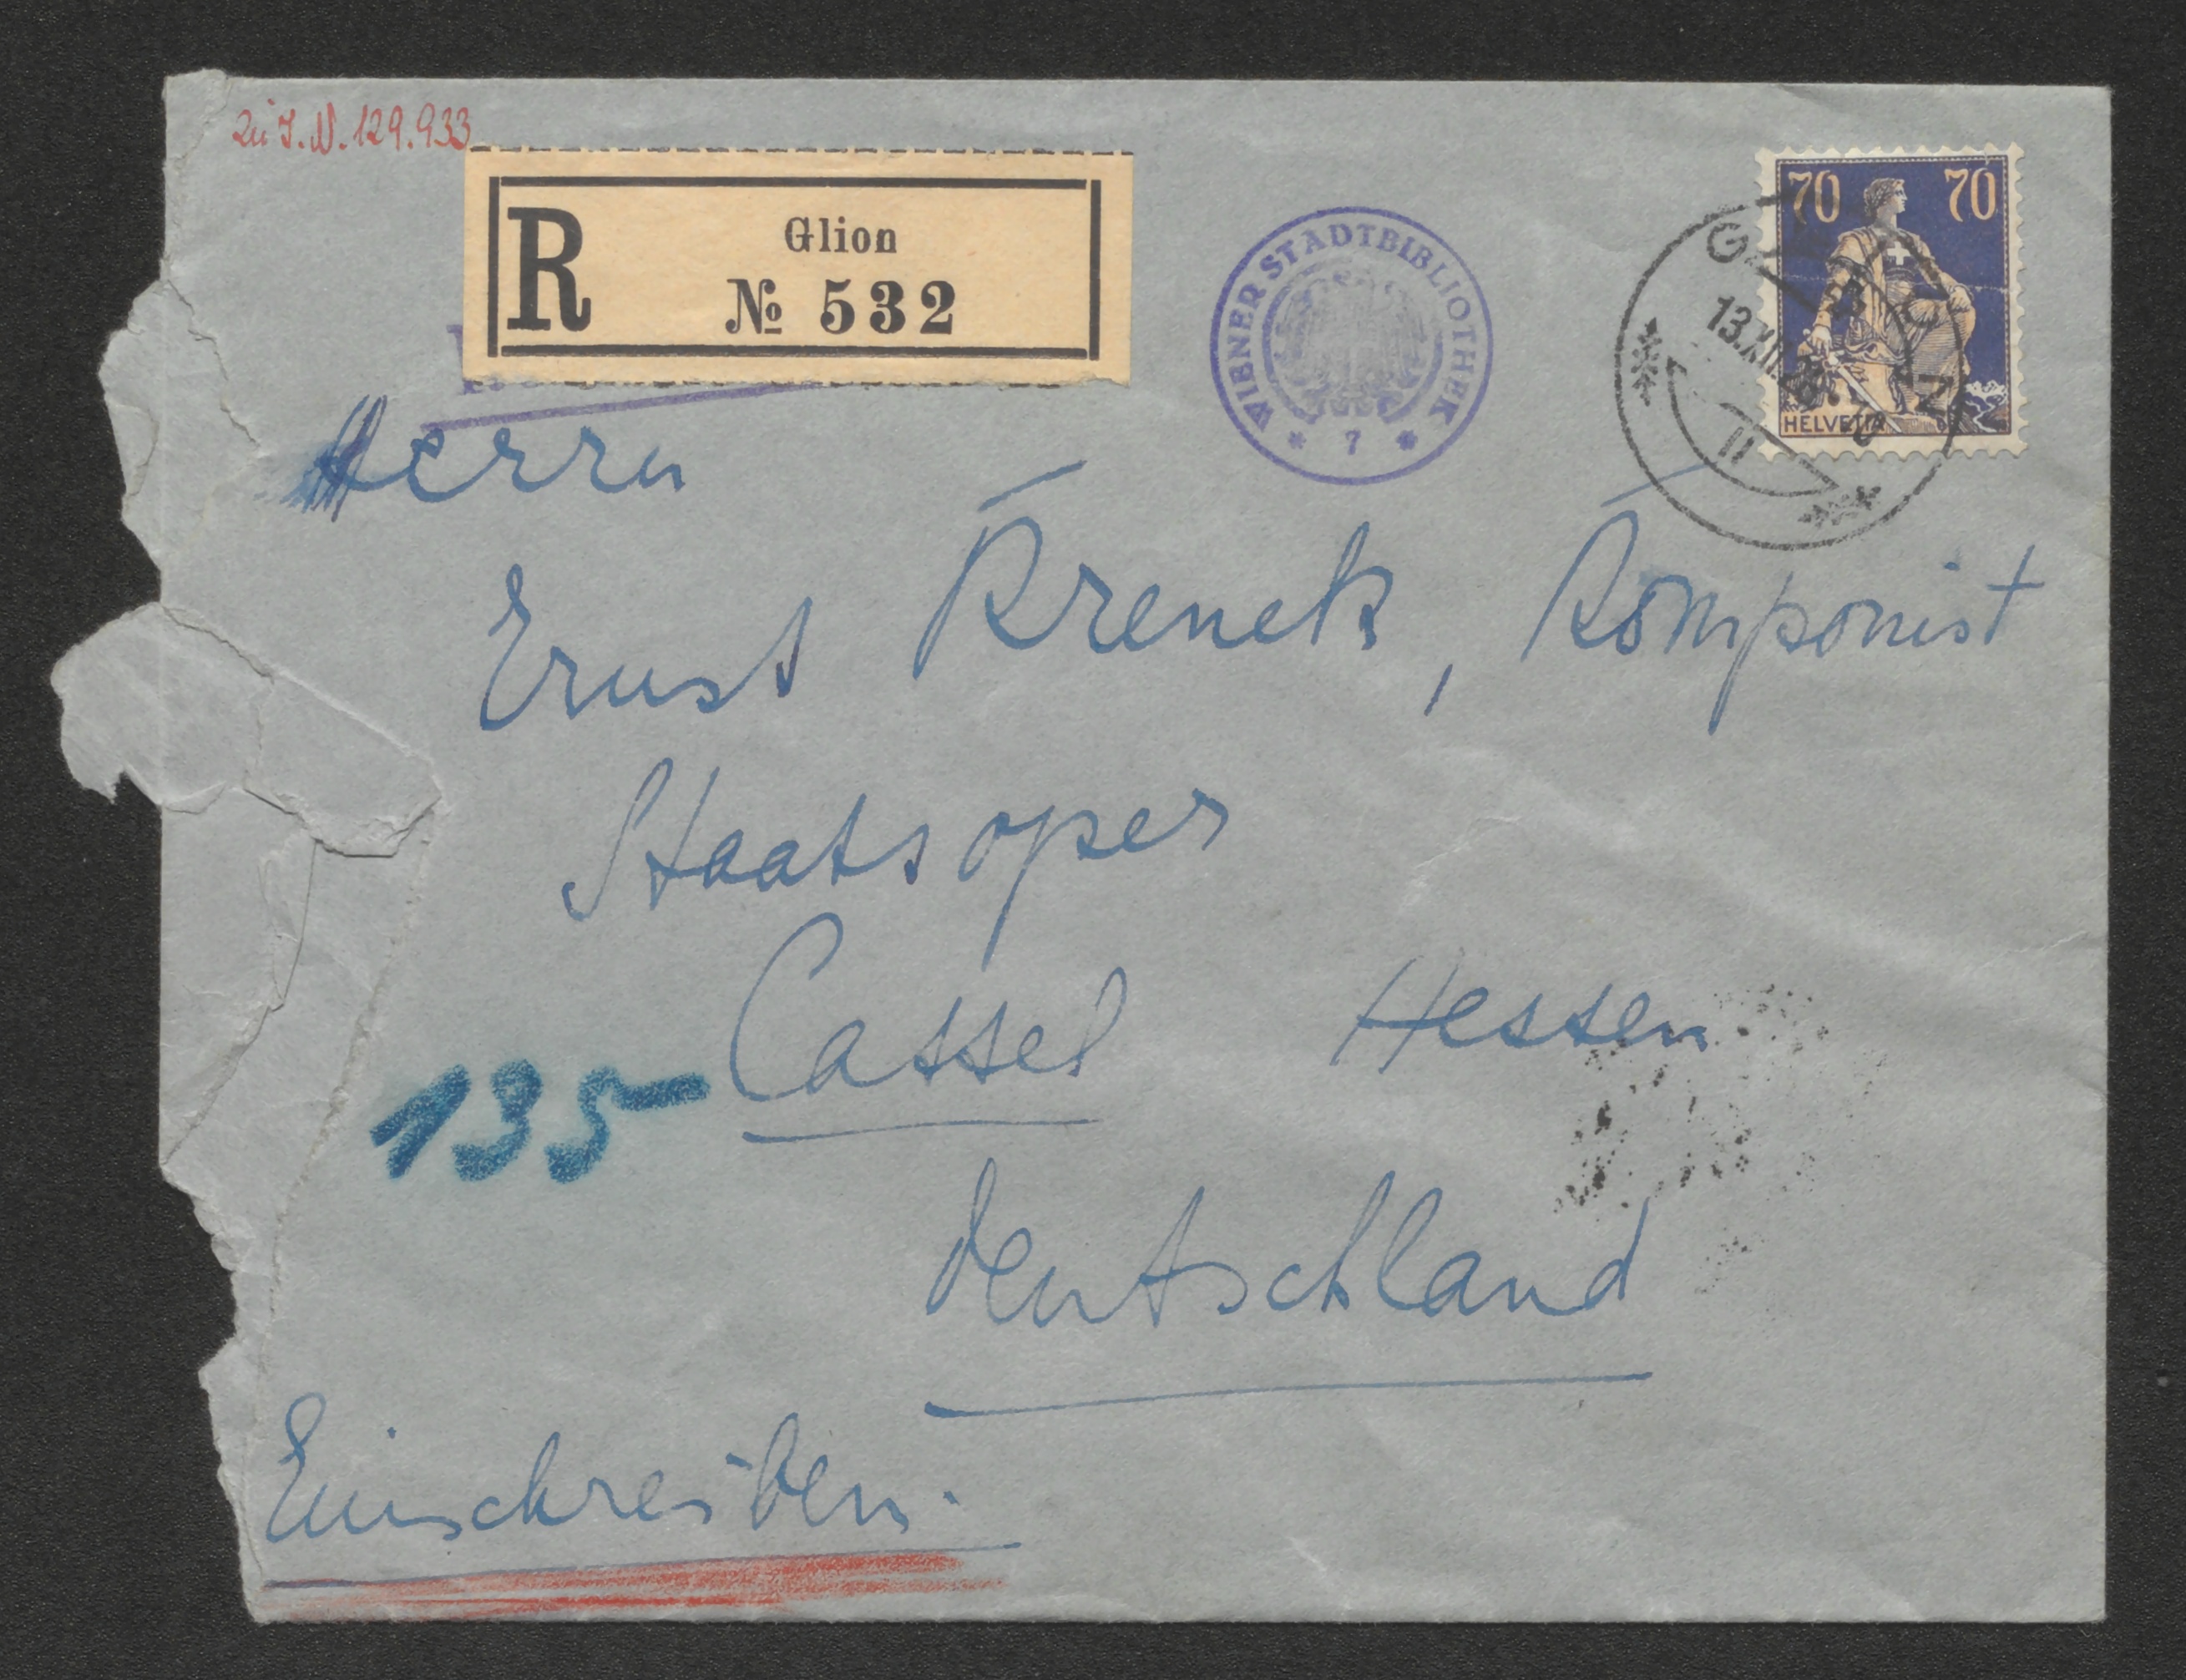 zu I.N. 129.933
R Glion
№ 532
WIENER STADTBIBLIOTHEK
* 7 *
70 70
HELVETIA
GLION
13.XII.
II
Herrn
Ernst Krenek, Komponist
Staatsoper
Cassel Hessen
135
Deutschland
Einschreiben.